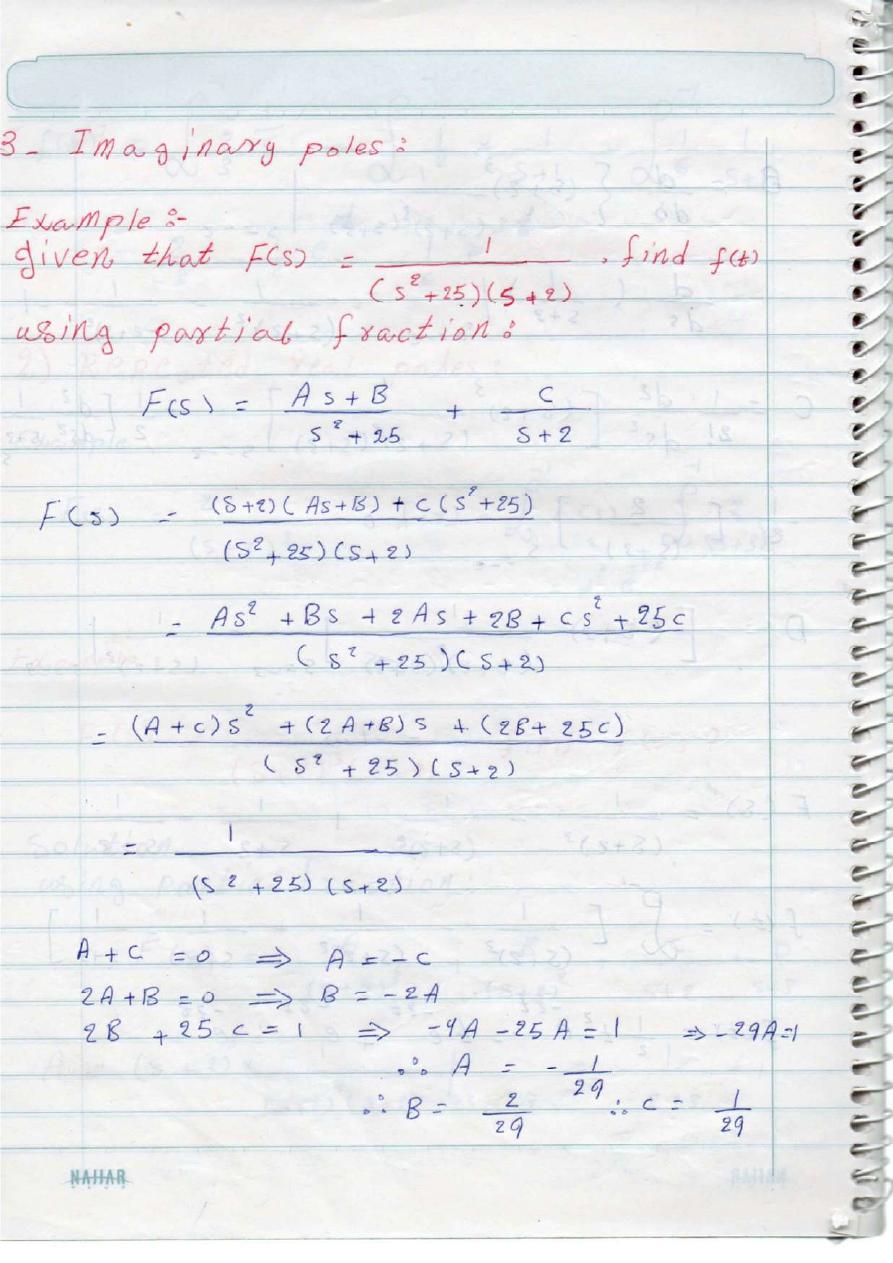 3- Imaginary poles:
Example:-
given that F(s) = 1 / (s²+25)(s+2) . find f(t)
using partial fraction:
F(s) = As+B / s²+25 + C / s+2
F(s) = (s+2)(As+B) + C(s²+25) / (s²+25)(s+2)
= As² + Bs + 2As + 2B + Cs² + 25C / (s²+25)(s+2)
= (A+C)s² + (2A+B)s + (2B+25C) / (s²+25)(s+2)
= 1 / (s²+25)(s+2)
A+C = 0 ⇒ A = -C
2A+B = 0 ⇒ B = -2A
2B + 25C = 1 ⇒ -4A -25A = 1 ⇒ -29A=1
∴ A = - 1/29
∴ B = 2/29 ∴ C = 1/29
NAHAR